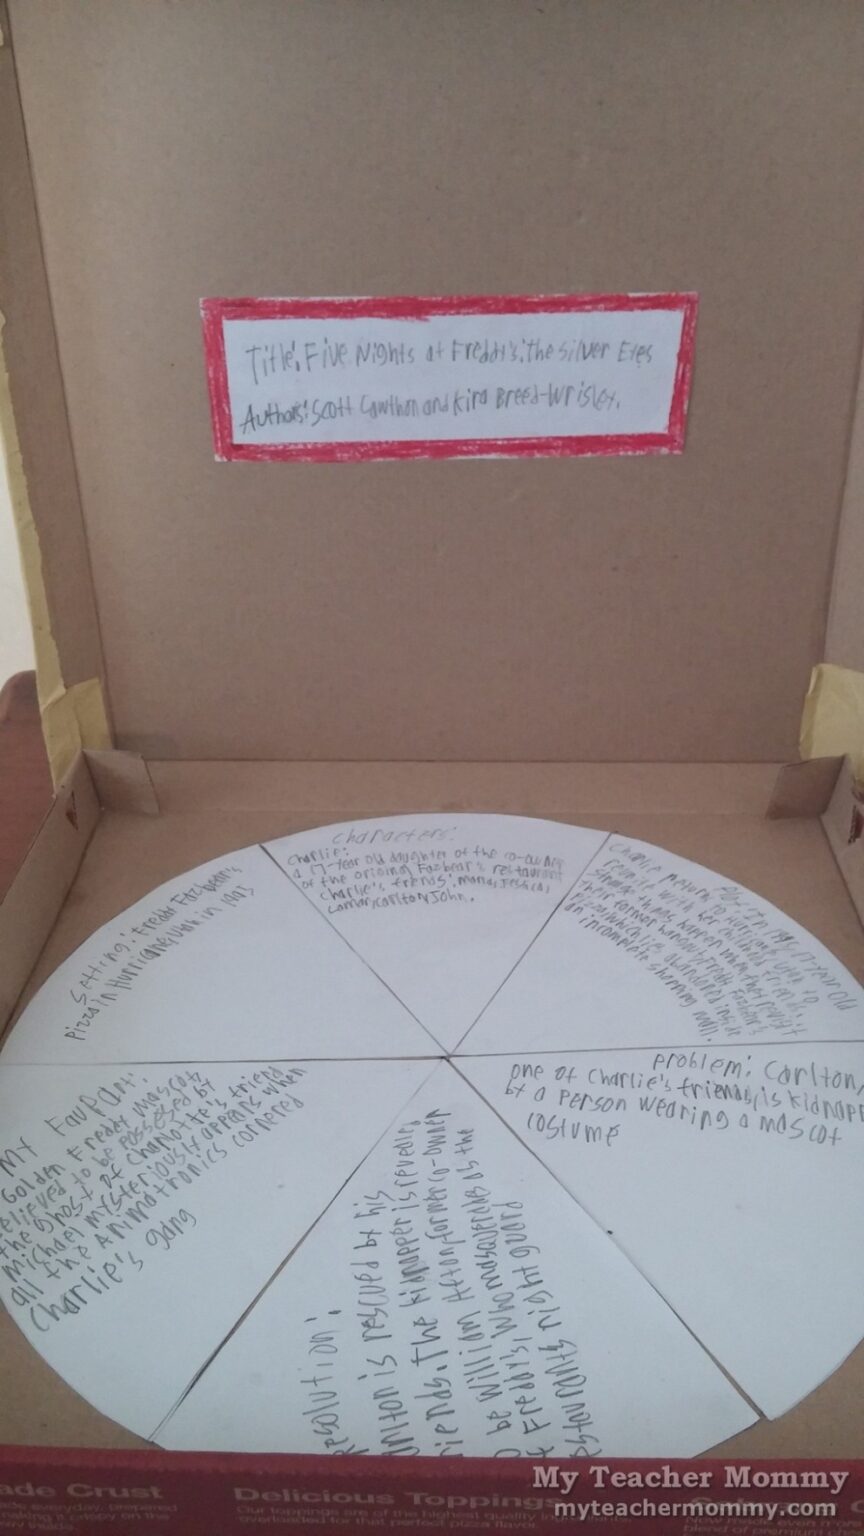 Title: Five Nights at Freddy's: The Silver Eyes
Authors: Scott Cawthon and Kira Breed-Wrisley.
Characters:
Charlie:
a 17-year old daughter of the co-owner
of the original Fazbear's restaurant
Charlie's friends: Marla, Jessica,
Lamar, Carlton, John.
Setting: Freddy Fazbear's
Pizza in Hurricane, Utah in
Plot: In 1995, 17-year old
Charlie return to Hurricane, Utah to
reunite with her childhood friends.
Strange things happen when they revisit
their former hangout Freddy Fazbear's
Pizza, which lies abandoned inside
an incomplete shopping mall.
Problem: Carlton,
one of Charlie's friends, is kidnapp
by a person wearing a mascot
costume
My Fav Part:
Golden Freddy mascot,
elieved to be possessed by
the ghost of Charlotte's friend
Michael mysteriously appears when
all the Animatronics cornered
Charlie's gang
esolution:
arlton is rescued by his
iends. The kidnapper is reveale
William Afton, former co-owner
o be who masquerades as the
Freddy's,
estaurants night guard
ade Crust
Delicious Toppings
Our toppings are of the highest quality
overloaded for that perfect pizza flavor.
My Teacher Mommy
myteachermommy.com